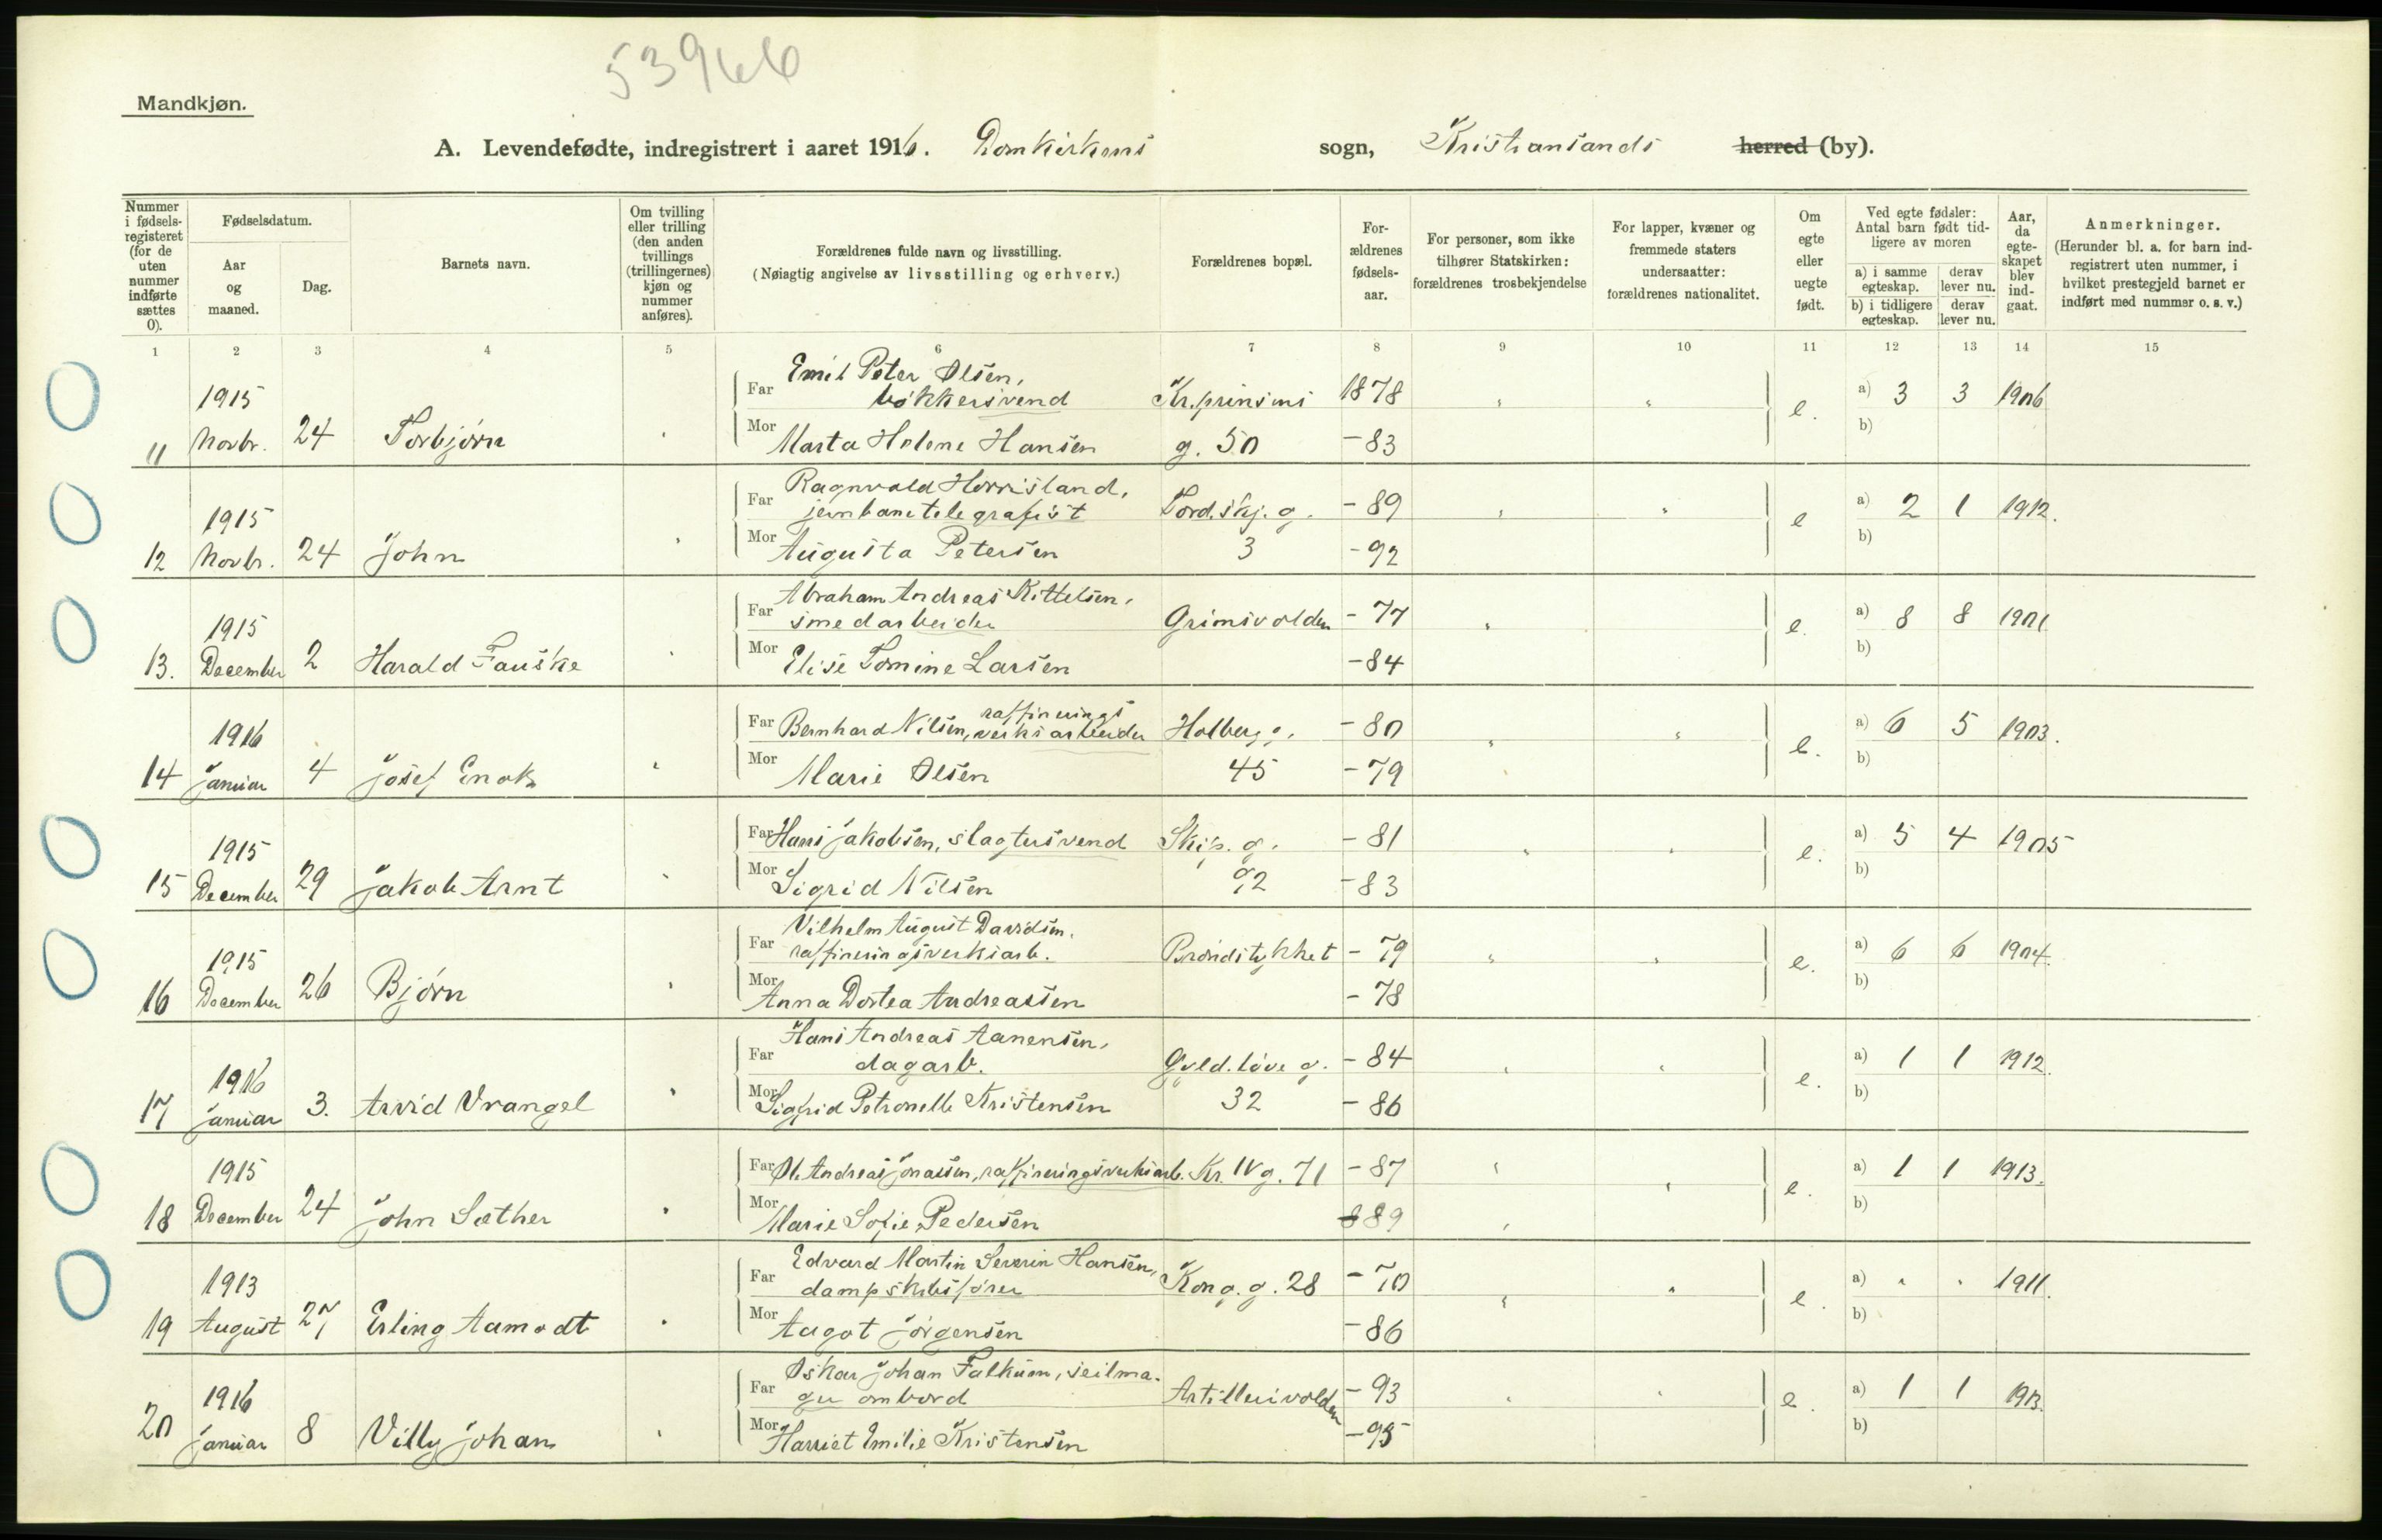 53966
Mandkjøn.
A. Levendefødte, indregistrert i aaret 1916. Domkirkens sogn, Kristiansands herred (by).
Nummer i fødselsregisteret (for de uten nummer indførte sættes 0).
Fødselsdatum.
Aar og maaned.
Dag.
Barnets navn.
Om tvilling eller trilling (den anden tvillings (trillingernes) kjøn og nummer anføres).
Forældrenes fulde navn og livsstilling.
(Nøiagtig angivelse av livsstilling og erhverv.)
Forældrenes bopæl.
Forældrenes fødselsaar.
For personer, som ikke tilhører Statskirken: forældrenes trosbekjendelse
For lapper, kvæner og fremmede staters undersaatter: forældrenes nationalitet.
Om egte eller uegte født.
Ved egte fødsler: Antal barn født tidligere av moren
a) i samme egteskap.
derav lever nu.
b) i tidligere egteskap.
derav lever nu.
Aar, da egteskapet blev indgaat.
Anmerkninger.
(Herunder bl. a. for barn indregistrert uten nummer, i hvilket prestegjeld barnet er indført med nummer o. s. v.)
1 2 3 4 5 6 7 8 9 10 11 12 13 14 15
Emil Peter Olsen,
1915 Far bøkkersvend Kr.prinsens 1878 " " a) 3 3 1906
11 Novbr. 24 Torbjørn " Mor Marta Helene Hansen g. 50 -83 e. b)
Ragnvald Horrisland,
1915 Far jernbanetelegrafist Tordskj. g. -89 " " a) 2 1 1912.
12 Novbr. 24 John " Mor Augusta Petersen 3 -92 e b)
Abraham Andreas Kittelsen,
1915 Far smedarbeider Grimsvolden -77 " a) 8 8 1901
13. December 2 Harald Fauske " Mor Elise Tomine Larsen -84 e. b)
raffinerings
1916 Far Bernhard Nilsen, verksarbeider Holberg g. -80 " " a) 6 5 1903.
14 Januar 4 Josef Enok " Mor Marie Olsen 45 -79 e. b)
1915 Far Hans Jakobsen, slagtersvend Skip. g. -81 " " a) 5 4 1905
15 December 29 Jakob Arnt " Mor Sigrid Nilsen 92 -83 e. b)
Vilhelm August Davidsen,
1915 Far raffineringsverksarb. Brøndstykket -79 " " a) 6 6 1904.
16 December 26 Bjørn " Mor Anna Dortea Andreassen -78 e. b)
Hans Andreas Aanensen,
1916 Far dagarb. Gyld.løve g. -84 " " a) 1 1 1912.
17 Januar 3. Arvid Vrangel " Mor Sigfrid Petronelle Kristensen 32 -86 e. b)
1915 Far Ole Andreas Jonassen, raffineringsverksarb. Kr. IV g. 71 -87 " " a) 1 1 1913.
18 December 24 John Sæther " Mor Marie Sofie Pedersen 89 e. b)
Edvard Martin Severin Hansen,
1913 Far dampskibsfører Kong. g. 28 -70 " " a) " " 1911.
19 August 27 Erling Aamodt " Mor Aagot Jørgensen -86 e. b)
Oskar Johan Falkum, seilma-
1916 Far ger ombord Artillerivolden -93 " " a) 1 1 1913.
20 Januar 8 Villy Johan " Mor Harriet Emilie Kristensen -95 e. b)